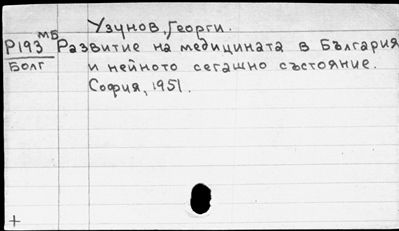 Узунов, Георги.
Р193 МБ Развитие на медицината в България
Болг и нейното сегашно състояние.
София, 1951.
+